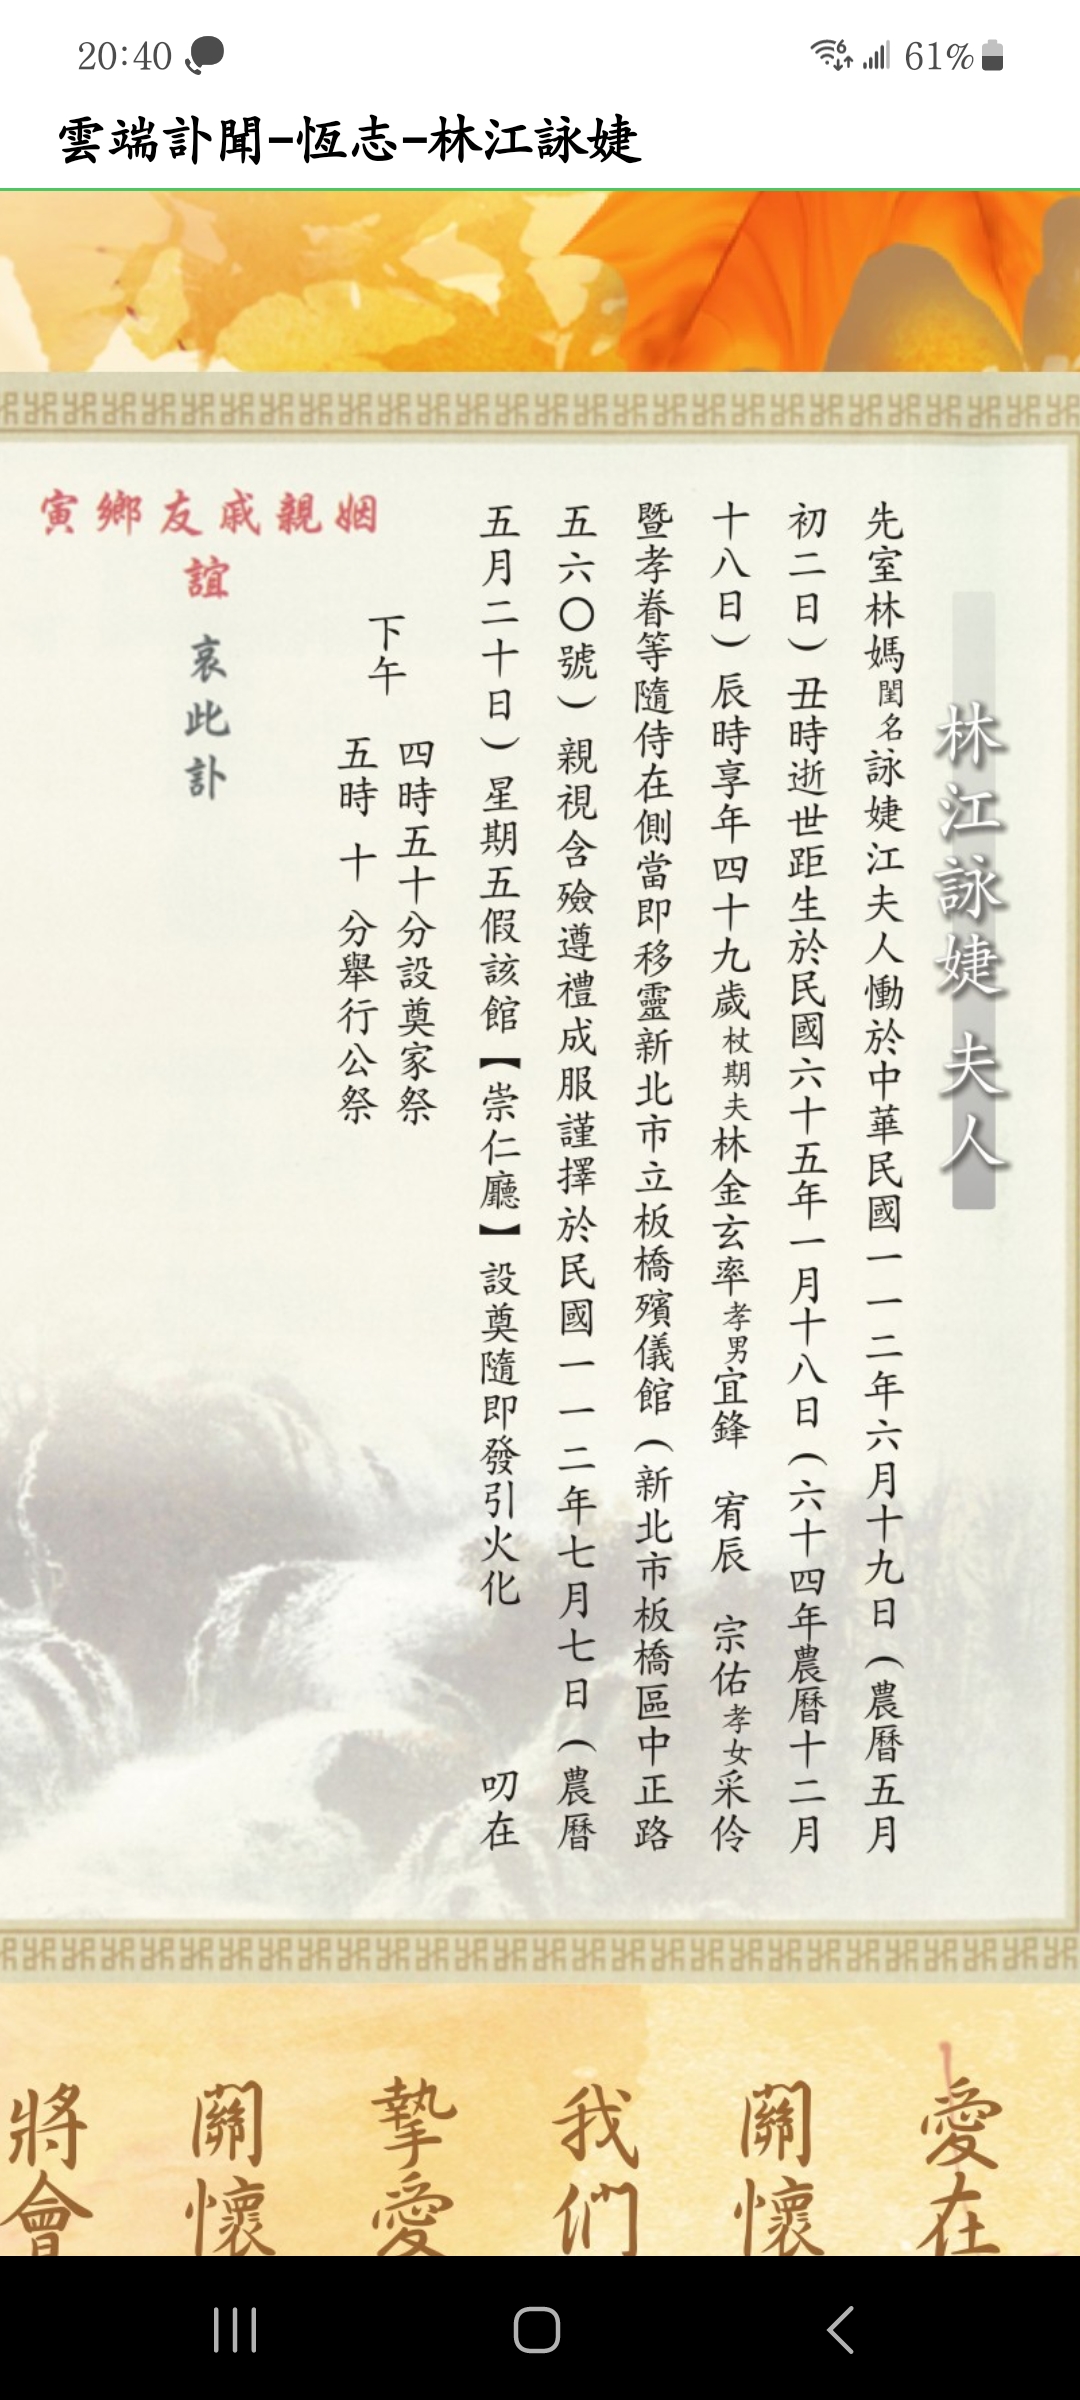 20:40
6
61%
雲端訃聞-恆志-林江詠婕
林江詠婕 夫人
先室林媽閨名詠婕江夫人慟於中華民國一一二年六月十九日（農曆五月
初二日）丑時逝世距生於民國六十五年一月十八日（六十四年農曆十二月
十八日）辰時享年四十九歲杖期夫林金玄率孝男宜鋒 宥辰 宗佑孝女采伶
暨孝眷等隨侍在側當即移靈新北市立板橋殯儀館（新北市板橋區中正路
五六〇號）親視含殮遵禮成服謹擇於民國一一二年七月七日（農曆
五月二十日）星期五假該館【崇仁廳】設奠隨即發引火化 叨在
下午
四時五十分設奠家祭
五時 十 分舉行公祭
姻親戚友鄉寅
誼
哀此訃
愛在
關懷
我們
摯愛
關懷
將會